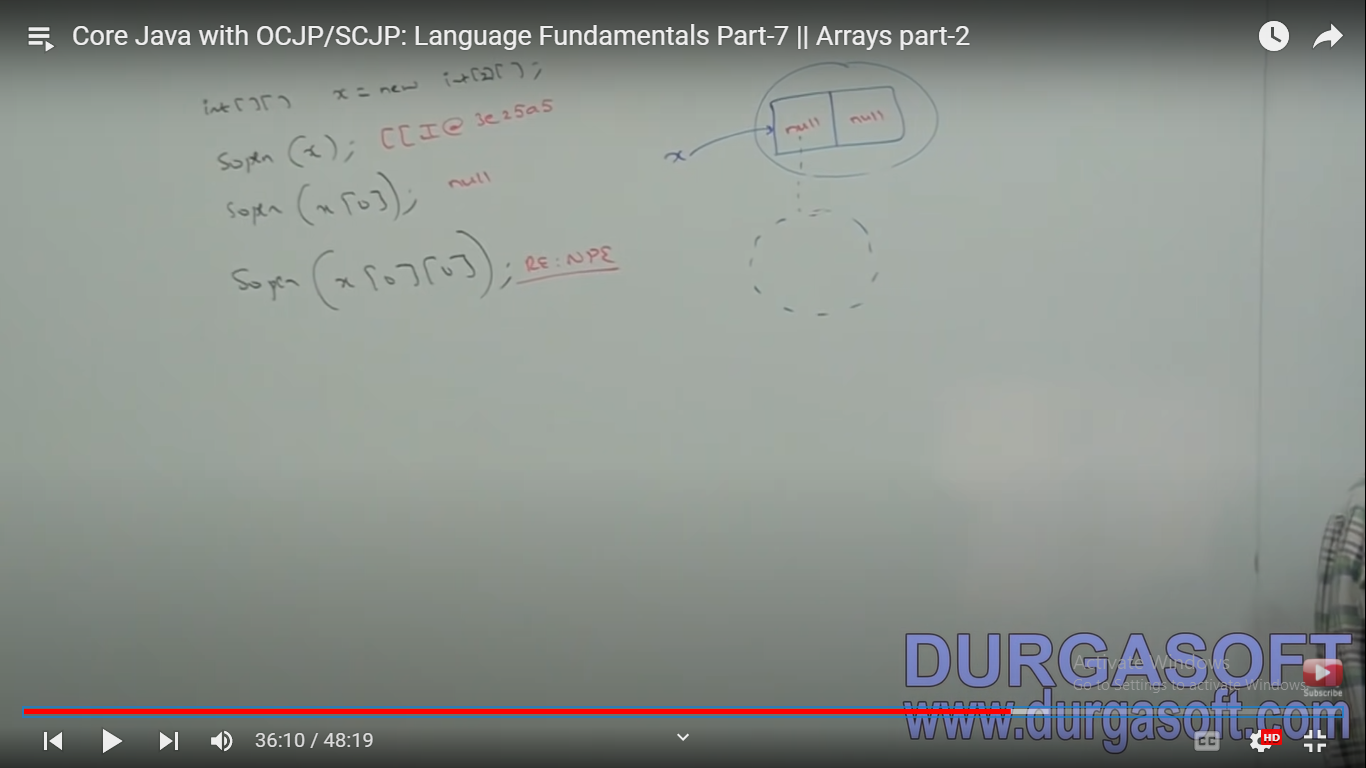 Core Java with OCJP/SCJP: Language Fundamentals Part-7 || Arrays part-2
int[][] x = new int[2][];
Sopln (x); [[I@3e25a5
Sopln (x[0]); null
Sopln (x[0][0]); RE:NPE
null null
x
DURGASOFT
www.durgasoft.com
Activate Windows
Go to Settings to activate Windows.
Subscribe
36:10 / 48:19
CC
HD